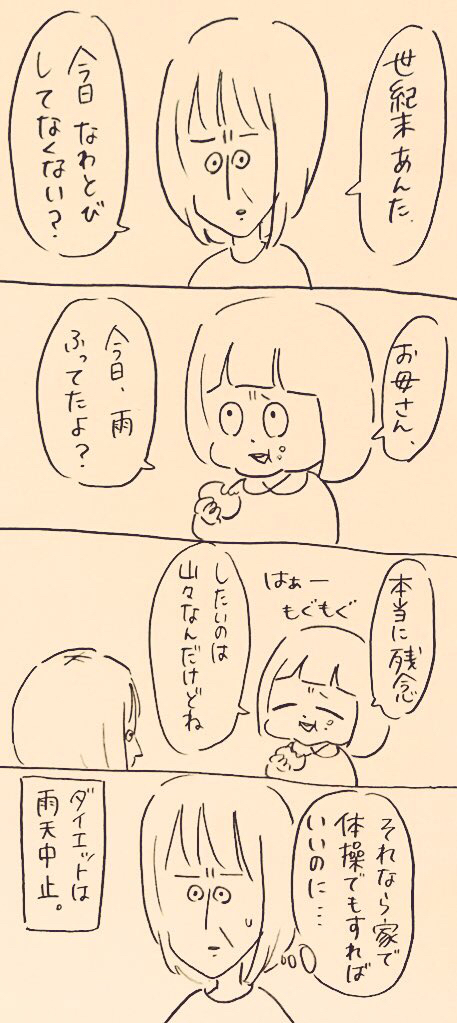 世紀末あんた、
今日 なわとび
してなくない？
お母さん、
今日、雨
ふってたよ？
本当に残念
はぁー
もぐもぐ
したいのは
山々なんだけどね
それなら家で
体操でもすれば
いいのに…
ダイエットは
雨天中止。